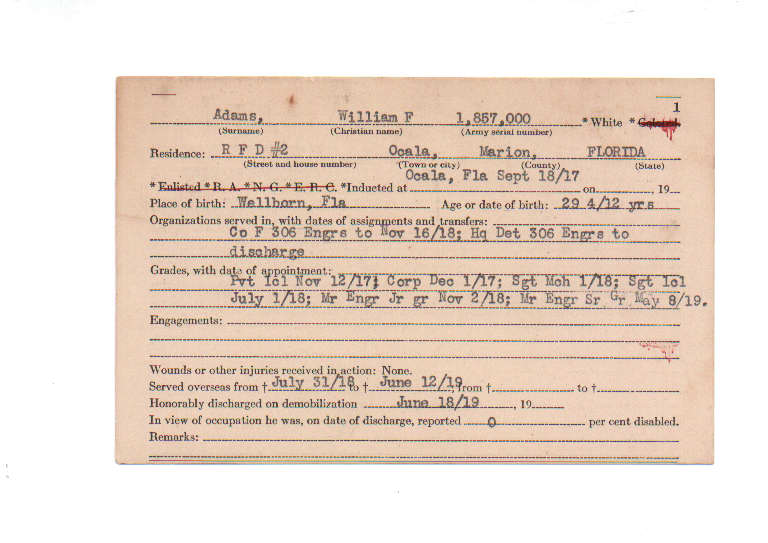 1
Adams, William F 1,857,000 * White * Colored
(Surname) (Christian name) (Army serial number)
Residence: R F D #2 Ocala, Marion, FLORIDA
(Street and house number) (Town or city) (County) (State)
Ocala, Fla Sept 18/17
* Enlisted * R. A. * N. G. * E. R. C. *Inducted at on , 19
Place of birth: Wellborn, Fla Age or date of birth: 29 4/12 yrs
Organizations served in, with dates of assignments and transfers:
Co F 306 Engrs to Nov 16/18; Hq Det 306 Engrs to
discharge
Grades, with date of appointment:
Pvt 1cl Nov 12/17; Corp Dec 1/17; Sgt Mch 1/18; Sgt 1cl
July 1/18; Mr Engr Jr gr Nov 2/18; Mr Engr Sr Gr May 8/19.
Engagements:
Wounds or other injuries received in action: None.
Served overseas from † July 31/18 to † June 12/19, from † to †
Honorably discharged on demobilization June 18/19 , 19
In view of occupation he was, on date of discharge, reported 0 per cent disabled.
Remarks: